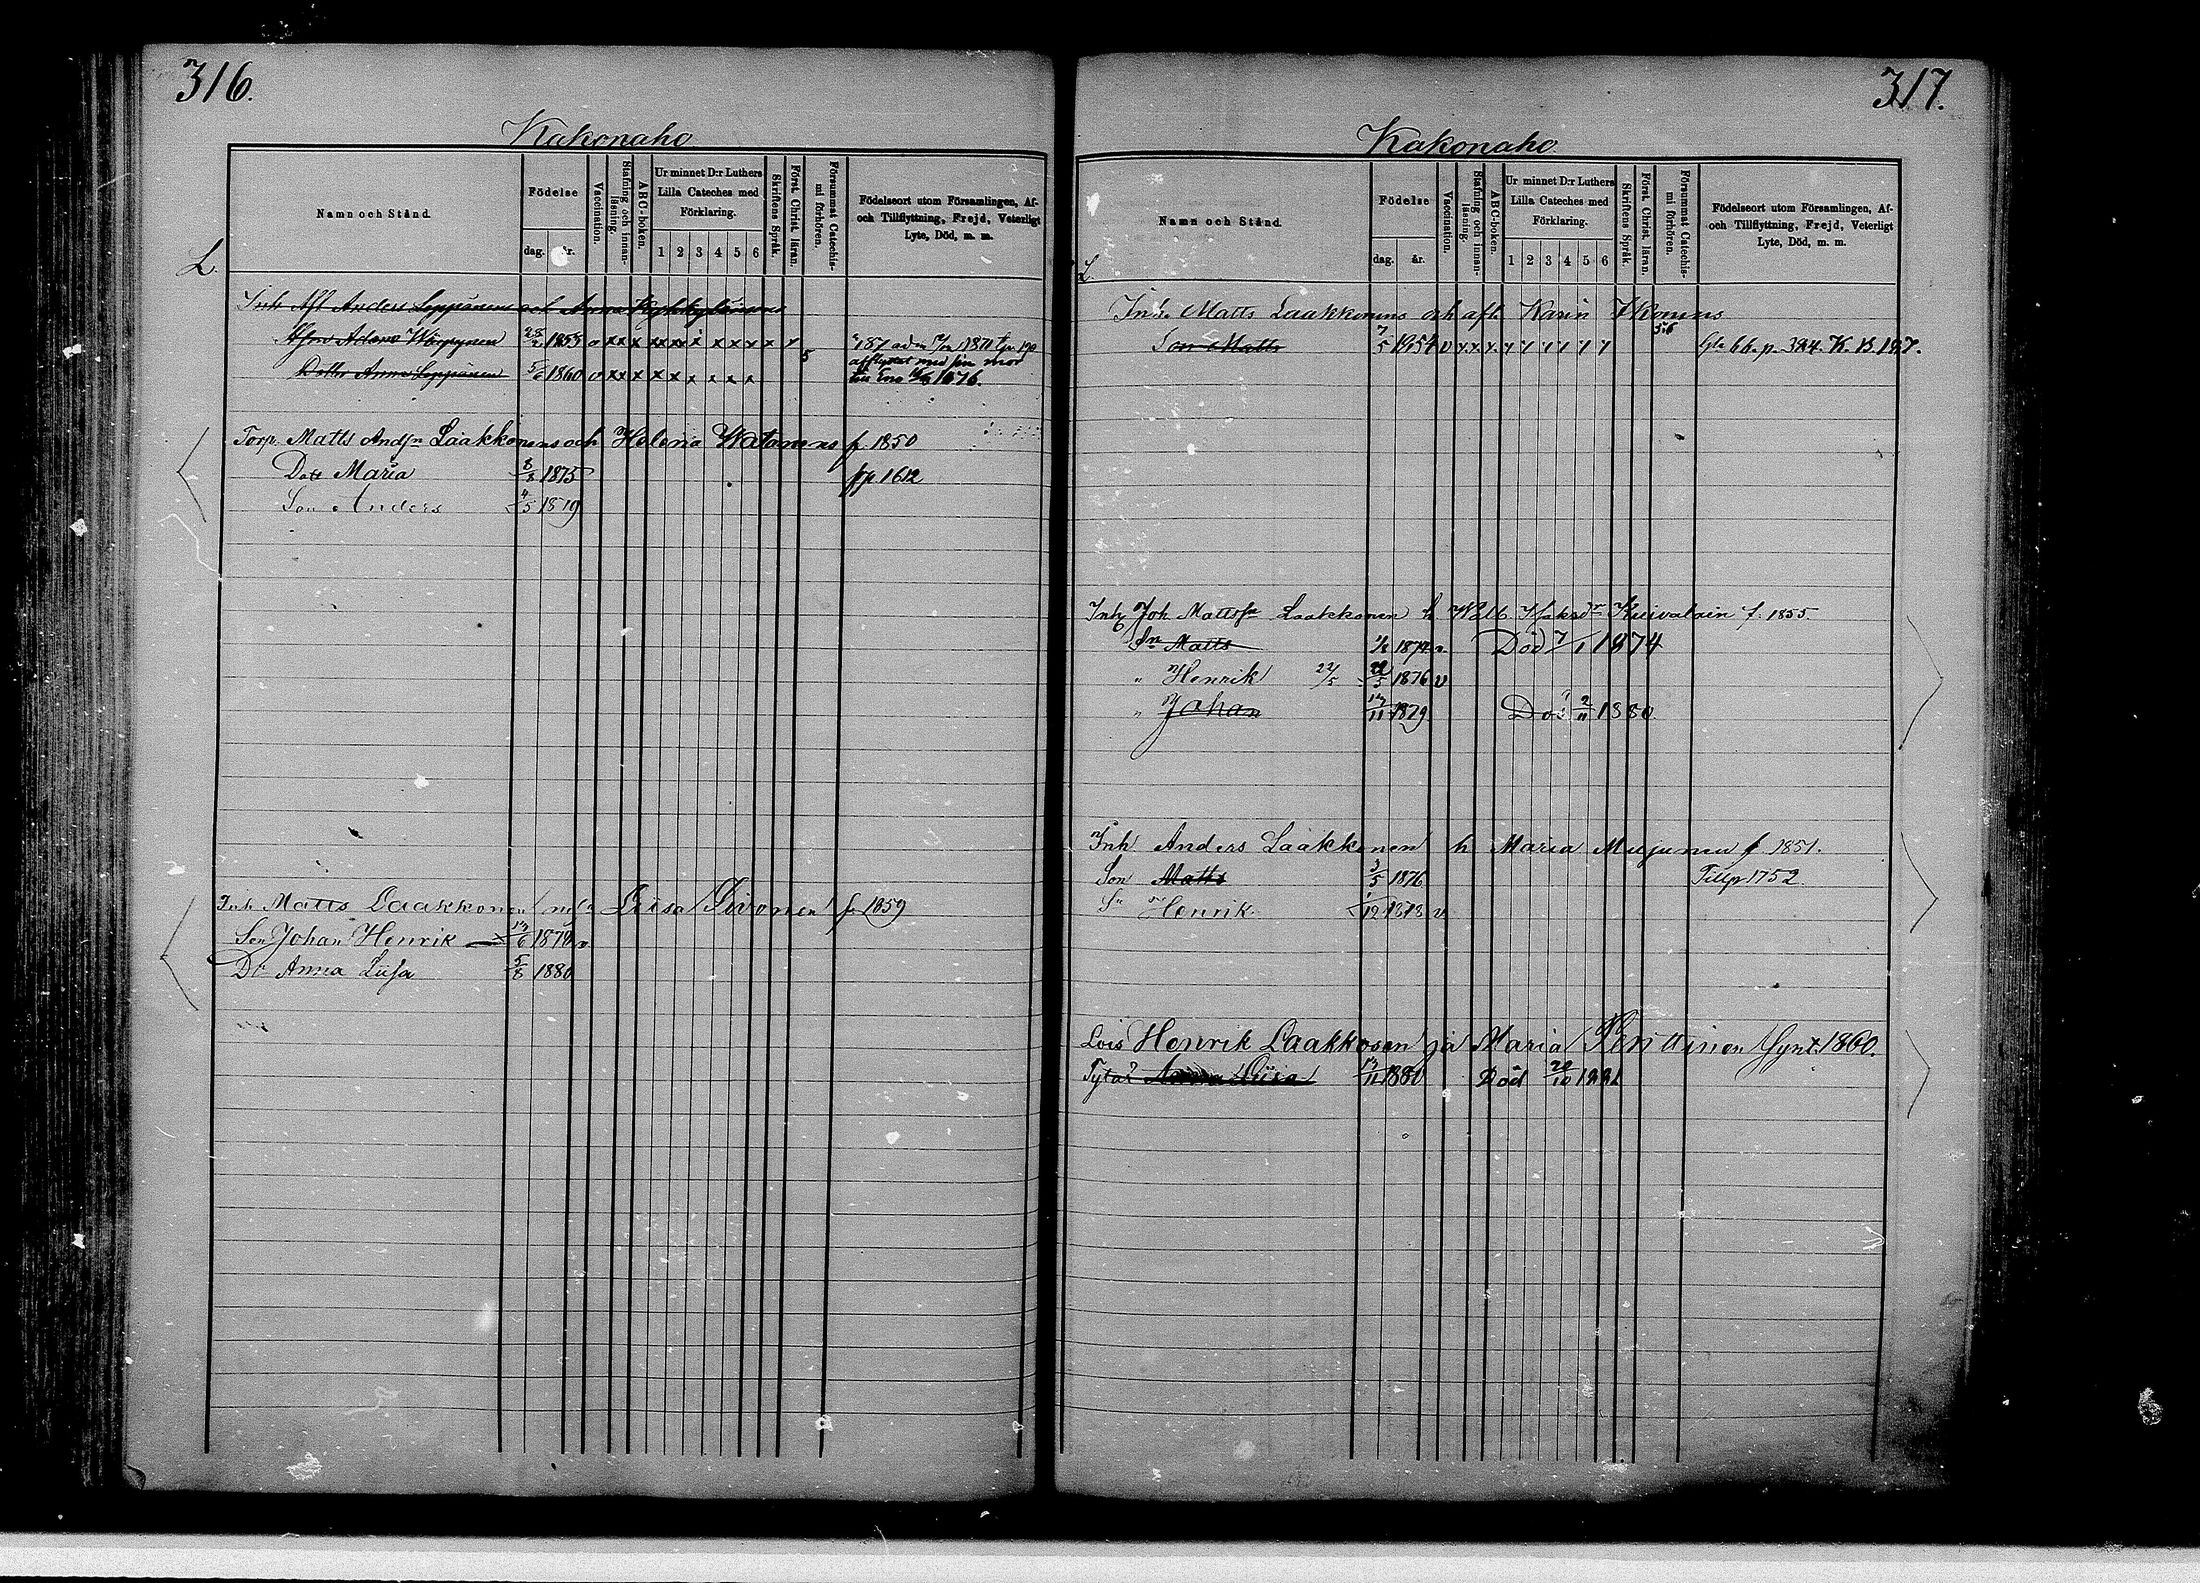 316.
Kakonaho
Namn och Stånd.
Födelse
dag.
år.
Vaccination.
Stafning och innanläsning.
ABC-boken.
Ur minnet D:r Luthers
Lilla Cateches med
Förklaring.
1 2 3 4 5 6
Skriftens Språk.
Först. Christ. läran.
Försummat Catechismi förhören.
Födelseort utom Församlingen, Af-
och Tillflyttning, Frejd, Veterligt
Lyte, Död, m. m.
L.
Inh Afl Anders Leppänens och Anna
Adam 28/2 1855 v x x x x x x x x x x x
Dottr Anna Leppänen 5/6 1860 v x x x x x x x x x 5
afflyttat med sin mor
till Eno 1876.
Torp. Matts Andsn Laakkonens och Helena Watanens f. 1850
Dott Maria 8/8 1875 pp 1612
Son Anders 4/5 1879
Inh Matts Laakkonen Liisa Sivonen f. 1859
Son Johan Henrik 17/6 1879 v
Dr Anna Liisa 5/8 1880
317.
Kakonaho
Namn och Stånd.
Födelse
dag.
år.
Vaccination.
Stafning och innanläsning.
ABC-boken.
Ur minnet D:r Luthers
Lilla Cateches med
Förklaring.
1 2 3 4 5 6
Skriftens Språk.
Först. Christ. läran.
Försummat Catechismi förhören.
Födelseort utom Församlingen, Af-
och Tillflyttning, Frejd, Veterligt
Lyte, Död, m. m.
L.
Inh. Matts Laakkonens och afl. Karin Ikonens
Son Matts 7/5 1854 v x x x 5.6
Inh Joh Mattssn Laakkonen h Walb. Kuivalain f. 1855.
Sn Matts 1/1 1874 Död 7/1 1874
" Henrik 22/5 1876 v
" Johan 17/11 1879 Död 2/11 1880
Inh Anders Laakkonen h Maria Mujunen f 1851.
Son Matts 3/5 1876 Tillp 1752.
Sn Henrik 1/12 1878 v
Lois Henrik Laakkosen ja Maria Penttinen Synt. 1860.
Tytär Anna Liisa 17/11 1880 Död 20/10 1881